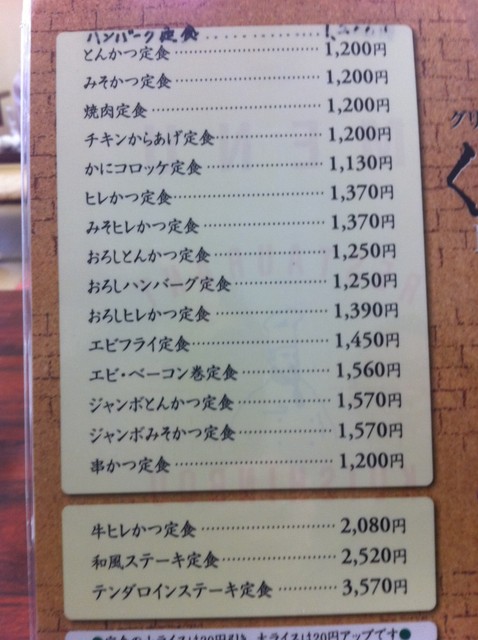 ハンバーグ定食
とんかつ定食 1,200円
みそかつ定食 1,200円
焼肉定食 1,200円
チキンからあげ定食 1,200円
かにコロッケ定食 1,130円
ヒレかつ定食 1,370円
みそヒレかつ定食 1,370円
おろしとんかつ定食 1,250円
おろしハンバーグ定食 1,250円
おろしヒレかつ定食 1,390円
エビフライ定食 1,450円
エビ・ベーコン巻定食 1,560円
ジャンボとんかつ定食 1,570円
ジャンボみそかつ定食 1,570円
串かつ定食 1,200円
牛ヒレかつ定食 2,080円
和風ステーキ定食 2,520円
テンダロインステーキ定食 3,570円
グリ
く